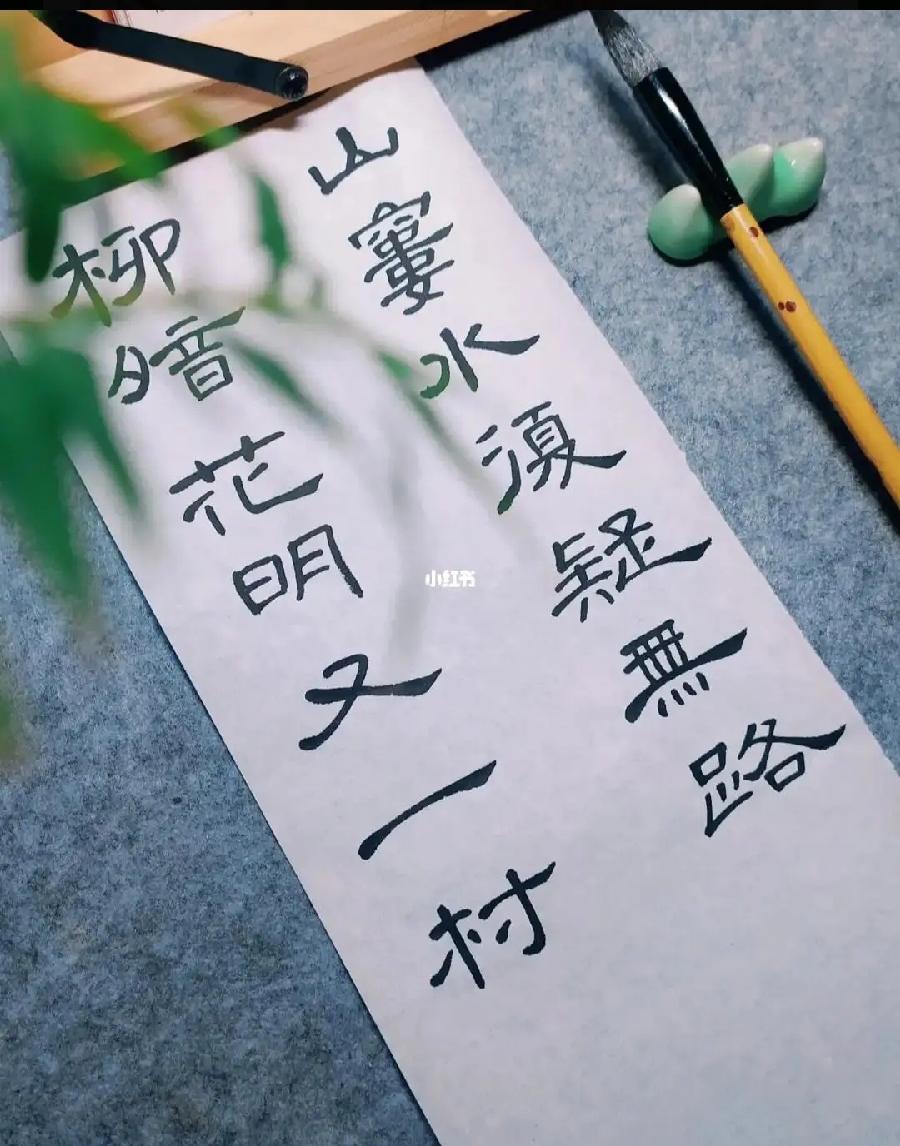 山窶水湏疑無路
柳暗花明又一村
小红书